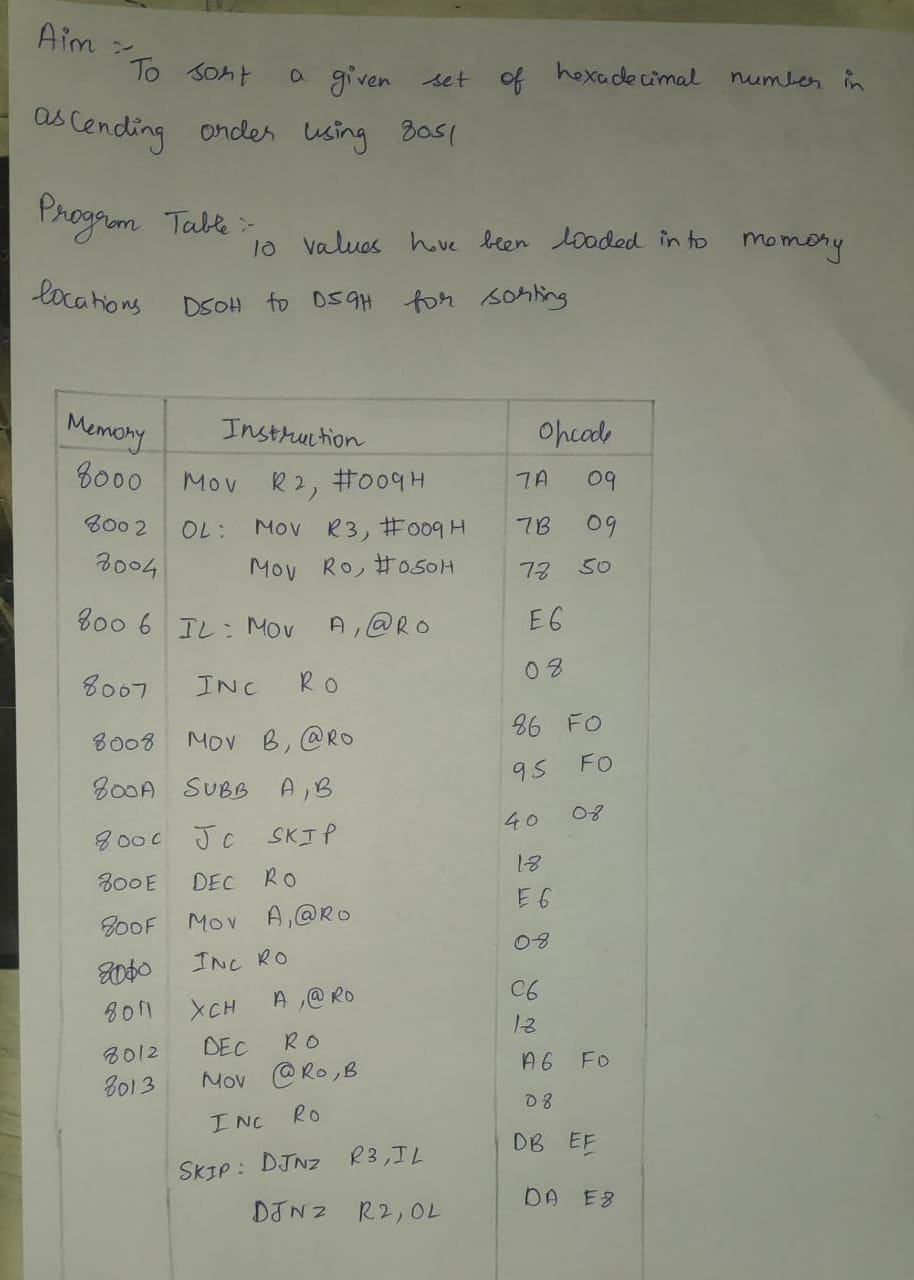 Aim :-
To sort a given set of hexadecimal number in
ascending order using 8051
Program Table :-
10 values have been loaded in to memory
locations D50H to D59H for sorting
Memory Instruction Opcode
8000 MOV R2, #009H 7A 09
8002 OL: MOV R3, #009H 7B 09
8004 MOV R0, #050H 78 50
8006 IL: MOV A, @R0 E6
8007 INC R0 08
8008 MOV B, @R0 86 F0
800A SUBB A, B 95 F0
800C JC SKIP 40 08
800E DEC R0 18
800F MOV A, @R0 E6
8010 INC R0 08
8011 XCH A, @R0 C6
8012 DEC R0 18
8013 MOV @R0, B A6 F0
INC R0 08
SKIP: DJNZ R3, IL DB EE
DJNZ R2, OL DA E8